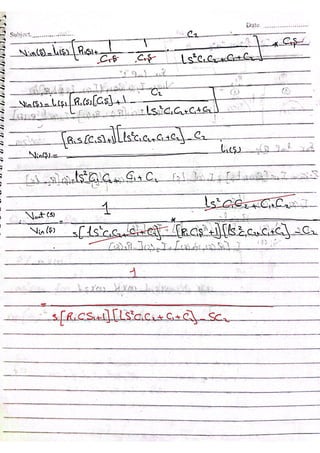 Subject Date
Vin(s) = I₁(s) [R₁(s) + 1/C₁S - 1/C₁S C₂/(LS²C₁C₂+C₁+C₂)] * C₁S
Vin(s) = I₁(s) [R₁(s)[C₁S] + 1 - C₂/(LS²C₁C₂+C₁+C₂)]
Vin(s) = [R₁S(C₁S)+1][LS²C₁C₂+C₁+C₂] - C₂ / LS²C₁C₂+C₁+C₂ I₁(s)
Vout(s)/Vin(s) = 1/S[LS²C₁C₂+C₁+C₂] * LS²C₁C₂+C₁C₂/[R₁C₁S+1][LS²C₁C₂+C₁+C₂] - C₂
= 1/S[R₁CS₁+1][LS²C₁C₂+C₁+C₂] - SC₂